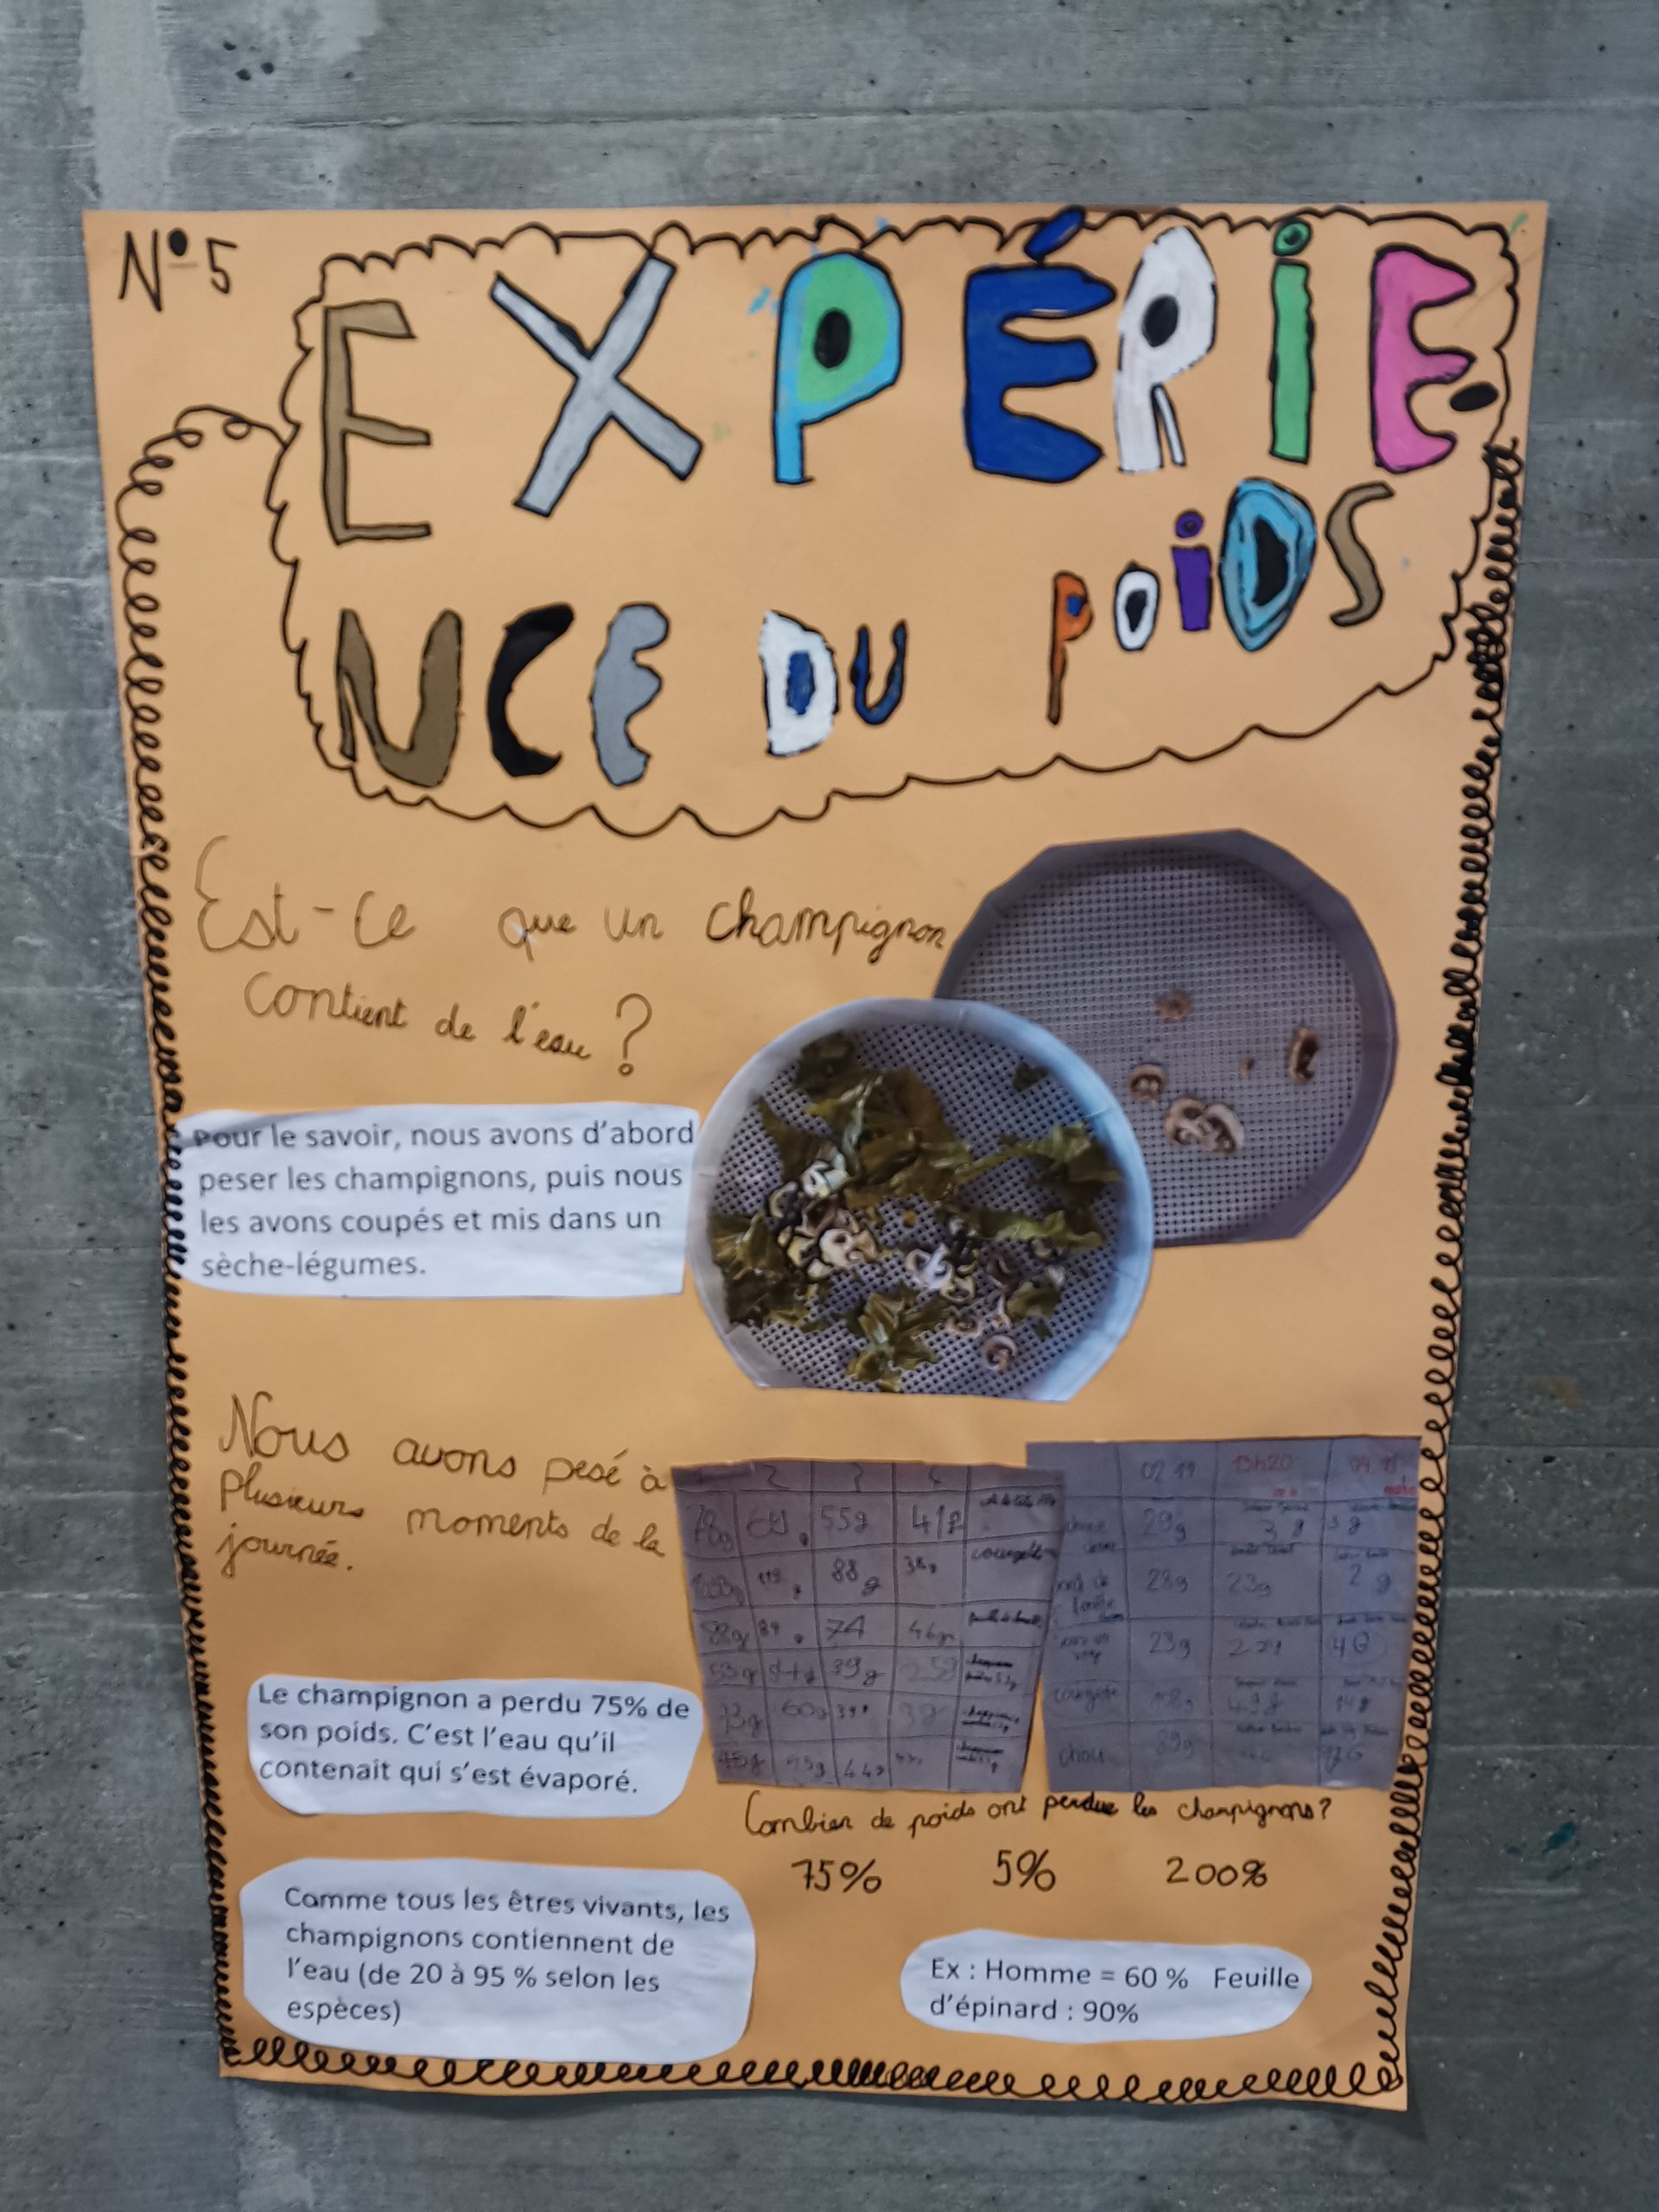 N°5
EXPÉRIE
NCE DU POIDS
Est-ce que un champignon
contient de l'eau ?
Pour le savoir, nous avons d'abord
peser les champignons, puis nous
les avons coupés et mis dans un
sèche-légumes.
Nous avons pesé à
plusieurs moments de la
journée.
2 3 4
78g 55g 41g
88g 38g courgette
74 46g
39g
60g
44g
02.11 13h20
29g 3g 3g
28g 23g 2g
23g
courgette 14g
chou 39g
Le champignon a perdu 75% de
son poids. C'est l'eau qu'il
contenait qui s'est évaporé.
Combien de poids ont perdue les champignons?
75% 5% 200%
Comme tous les êtres vivants, les
champignons contiennent de
l'eau (de 20 à 95 % selon les
espèces)
Ex : Homme = 60 % Feuille
d'épinard : 90%